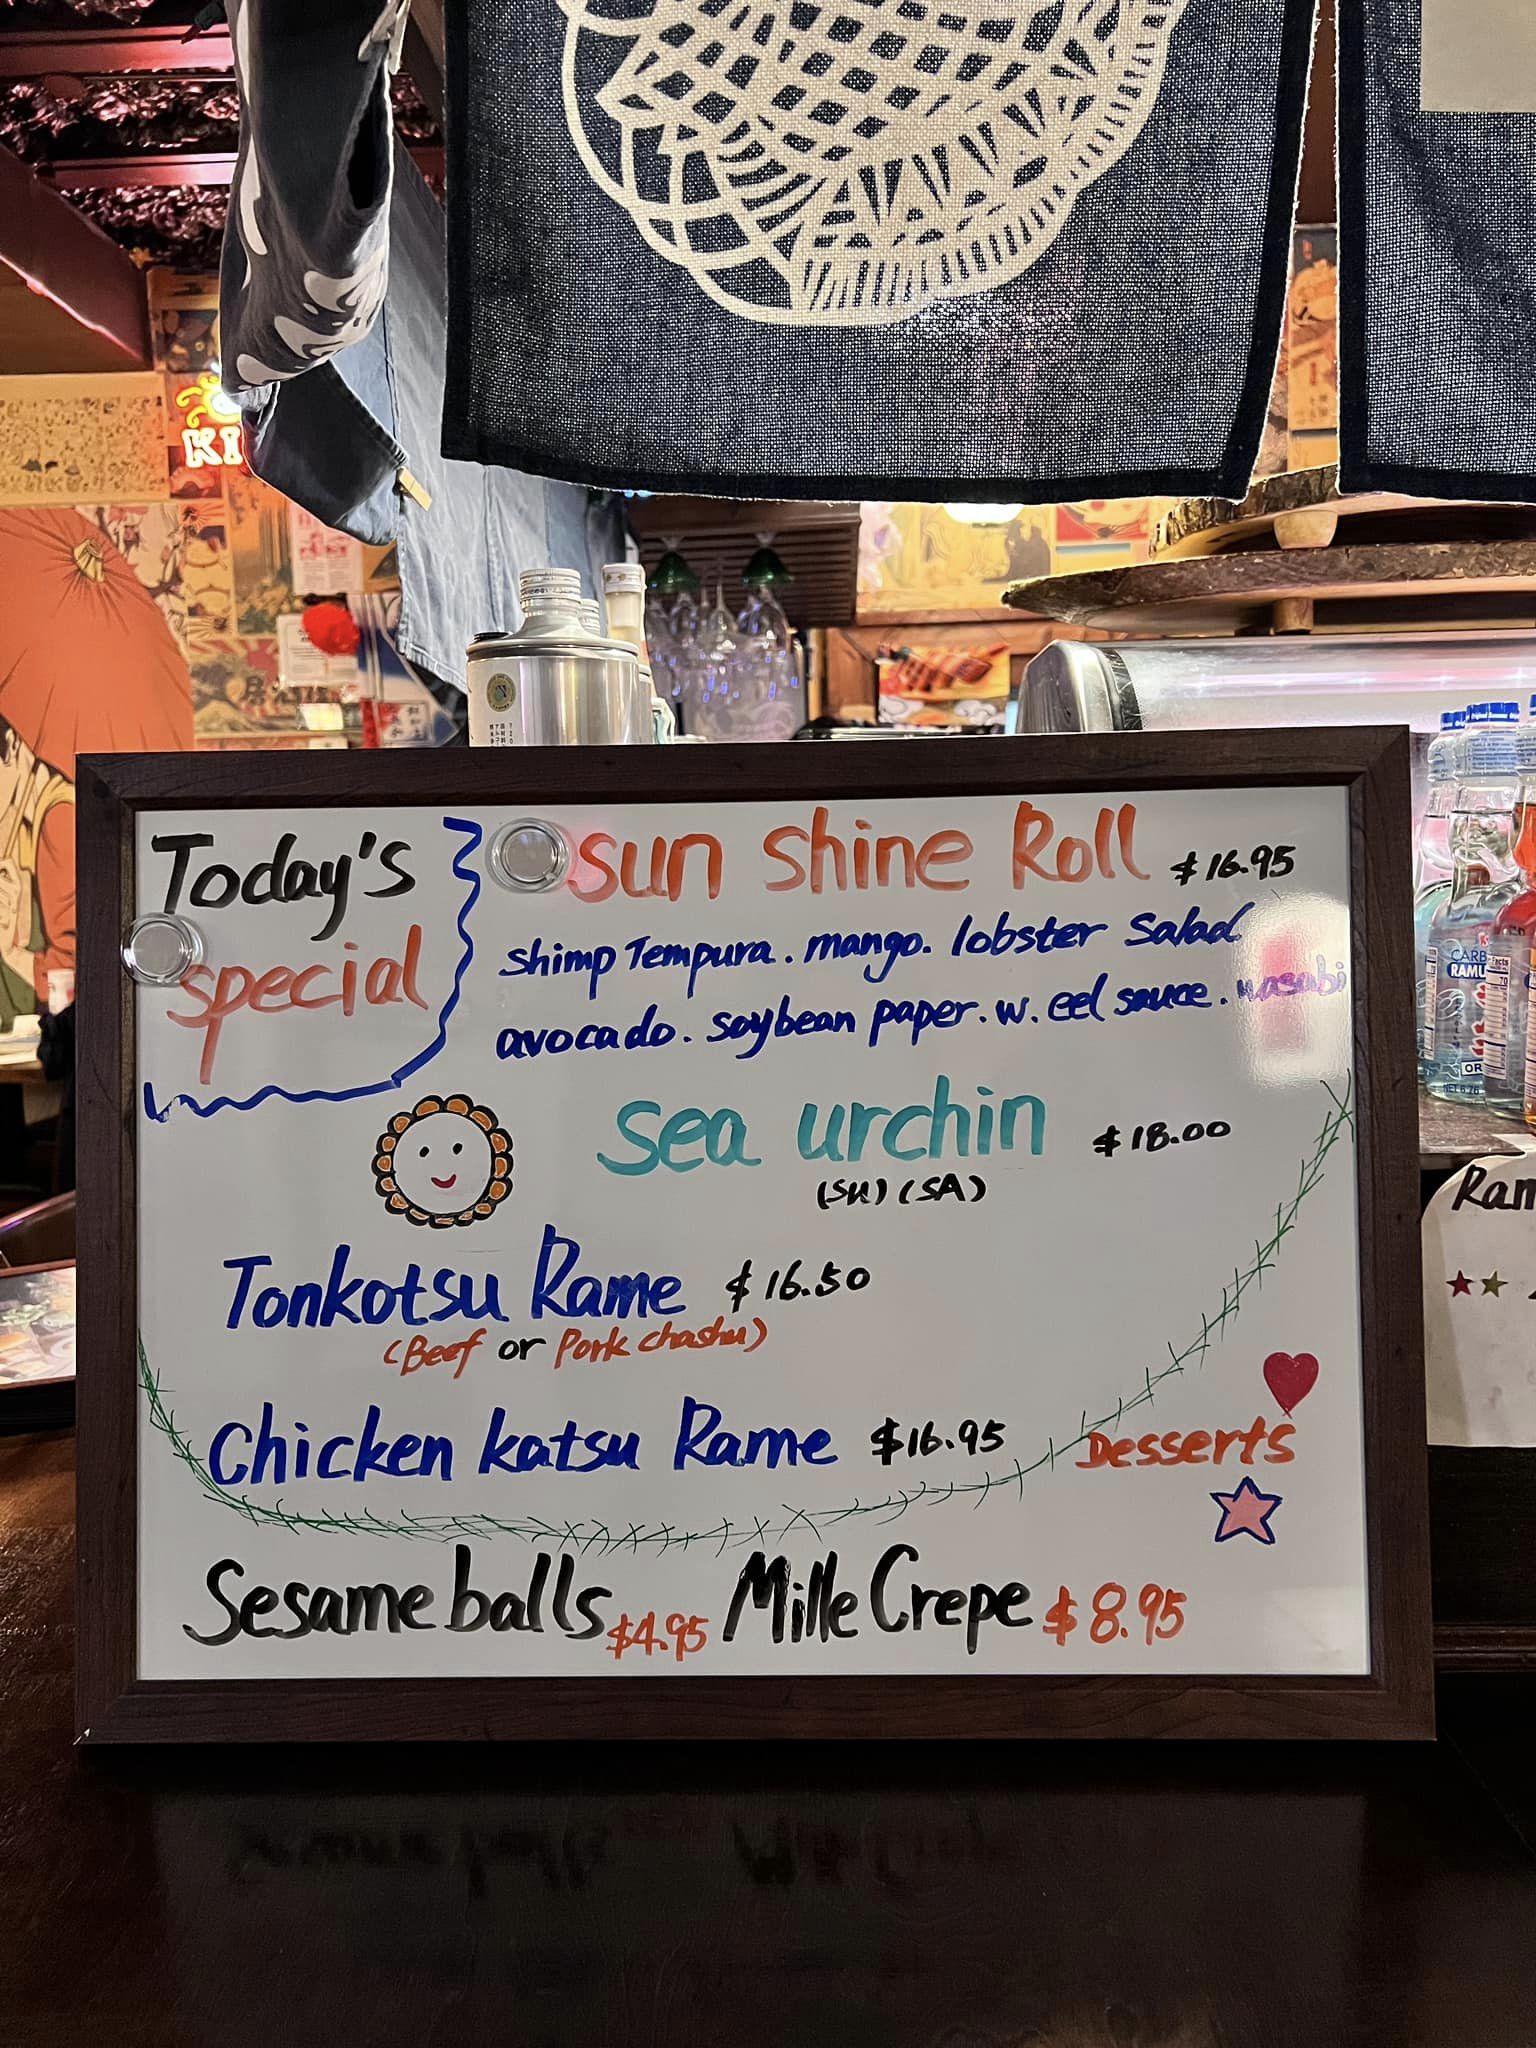 KI
Today's
special
sun shine Roll $16.95
shimp Tempura. mango. lobster Salad
avocado. soybean paper. w. eel sauce. wasabi
sea urchin $18.00
(SU) (SA)
Tonkotsu Rame $16.50
(Beef or Pork chashu)
Chicken katsu Rame $16.95
Desserts
Sesame balls $4.95 Mille Crepe $8.95
CARB
RAMU
OR
Ram